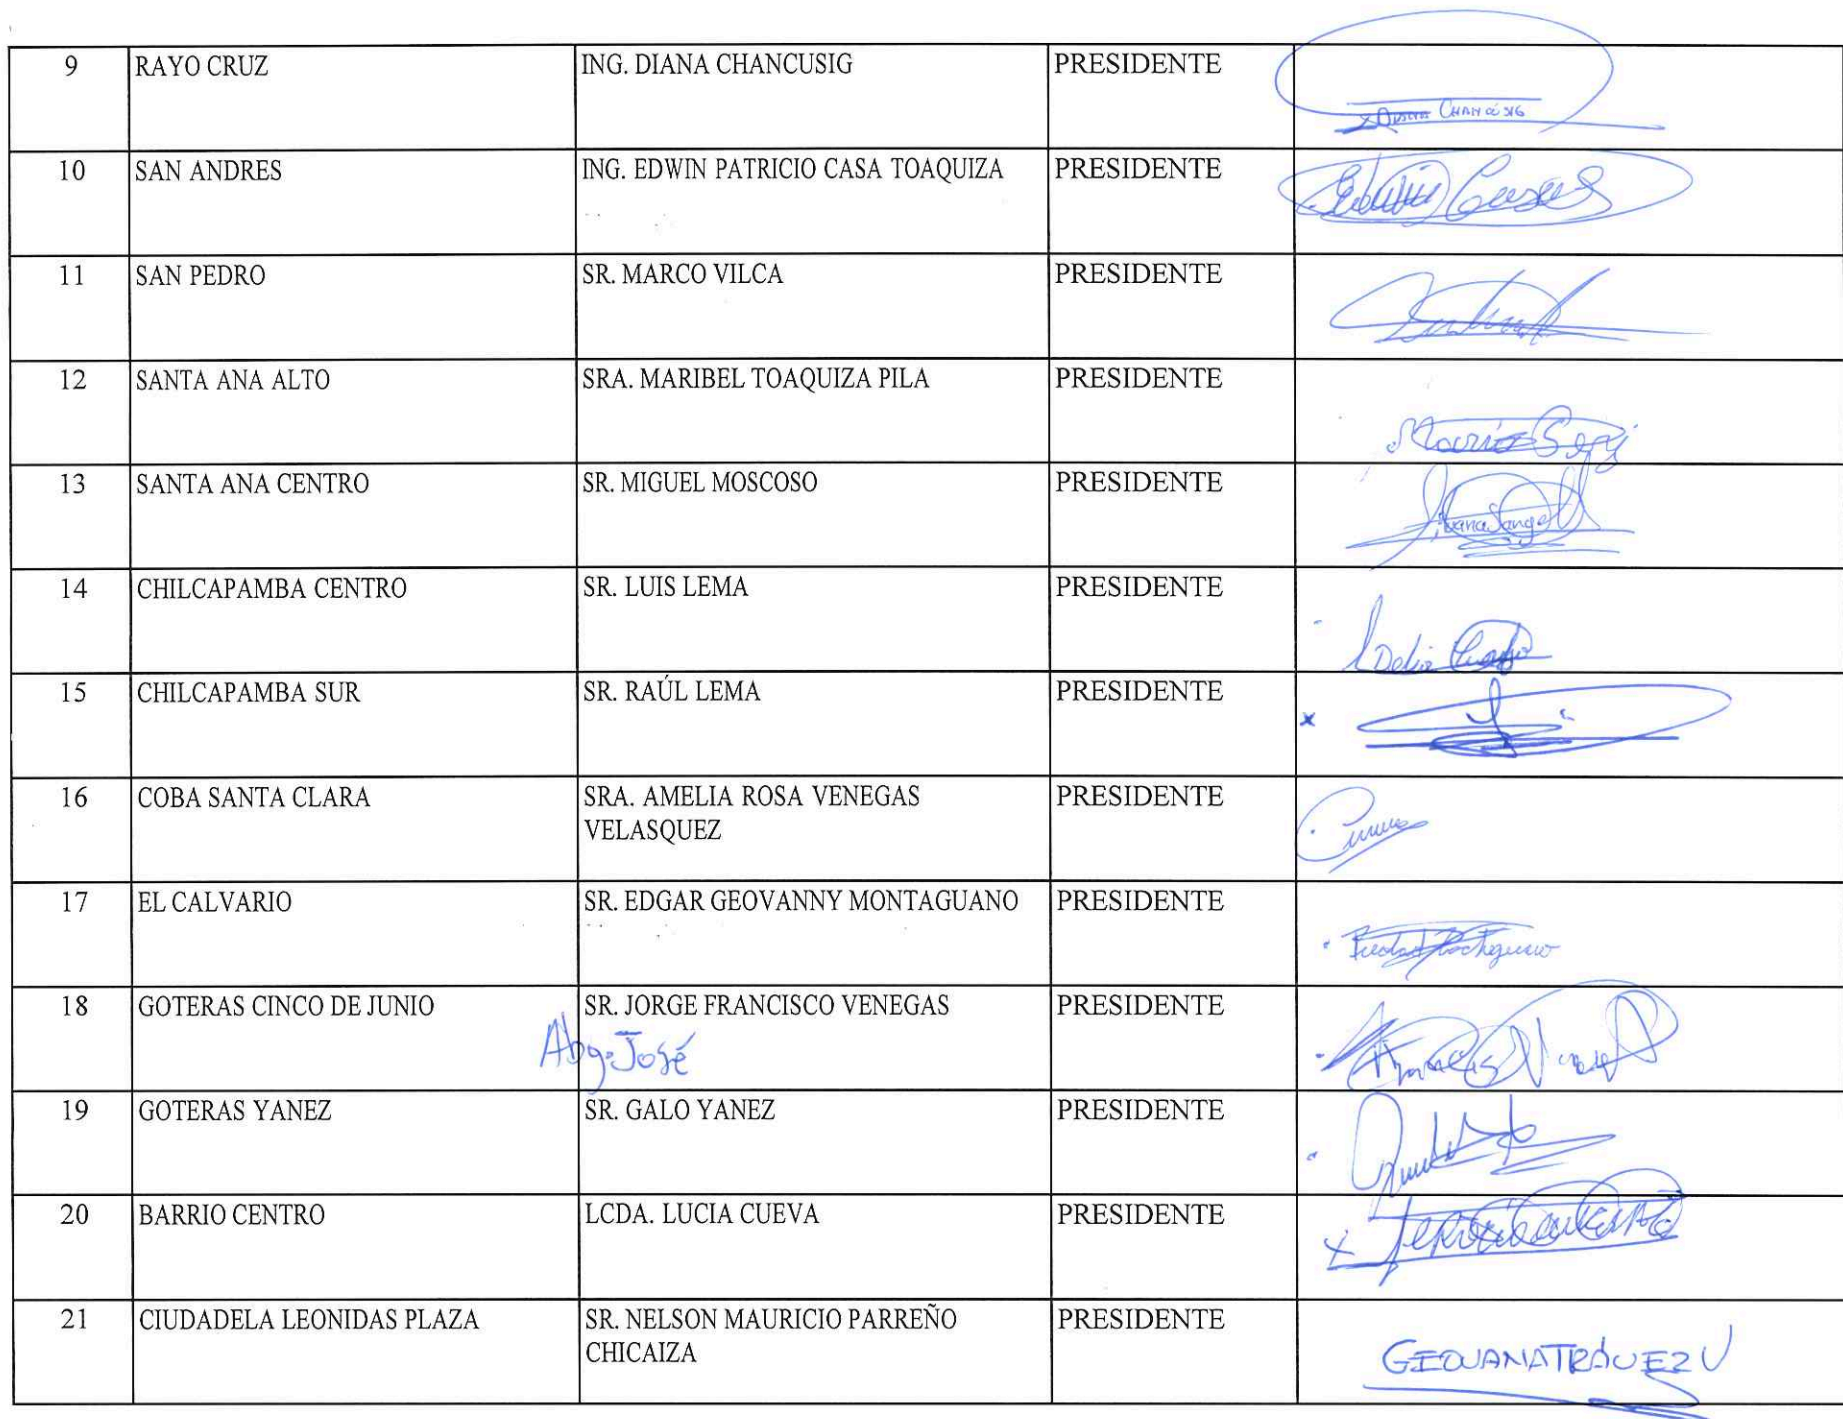 9 RAYO CRUZ ING. DIANA CHANCUSIG PRESIDENTE
Diana CHANCUSIG
10 SAN ANDRES ING. EDWIN PATRICIO CASA TOAQUIZA PRESIDENTE
Edwin
11 SAN PEDRO SR. MARCO VILCA PRESIDENTE
12 SANTA ANA ALTO SRA. MARIBEL TOAQUIZA PILA PRESIDENTE
13 SANTA ANA CENTRO SR. MIGUEL MOSCOSO PRESIDENTE
14 CHILCAPAMBA CENTRO SR. LUIS LEMA PRESIDENTE
Delia
15 CHILCAPAMBA SUR SR. RAÚL LEMA PRESIDENTE
x
16 COBA SANTA CLARA SRA. AMELIA ROSA VENEGAS PRESIDENTE
VELASQUEZ
17 EL CALVARIO SR. EDGAR GEOVANNY MONTAGUANO PRESIDENTE
18 GOTERAS CINCO DE JUNIO SR. JORGE FRANCISCO VENEGAS PRESIDENTE
Abg. José
19 GOTERAS YANEZ SR. GALO YANEZ PRESIDENTE
20 BARRIO CENTRO LCDA. LUCIA CUEVA PRESIDENTE
x
21 CIUDADELA LEONIDAS PLAZA SR. NELSON MAURICIO PARREÑO PRESIDENTE
CHICAIZA
GEOVANA TRÁVEZ V